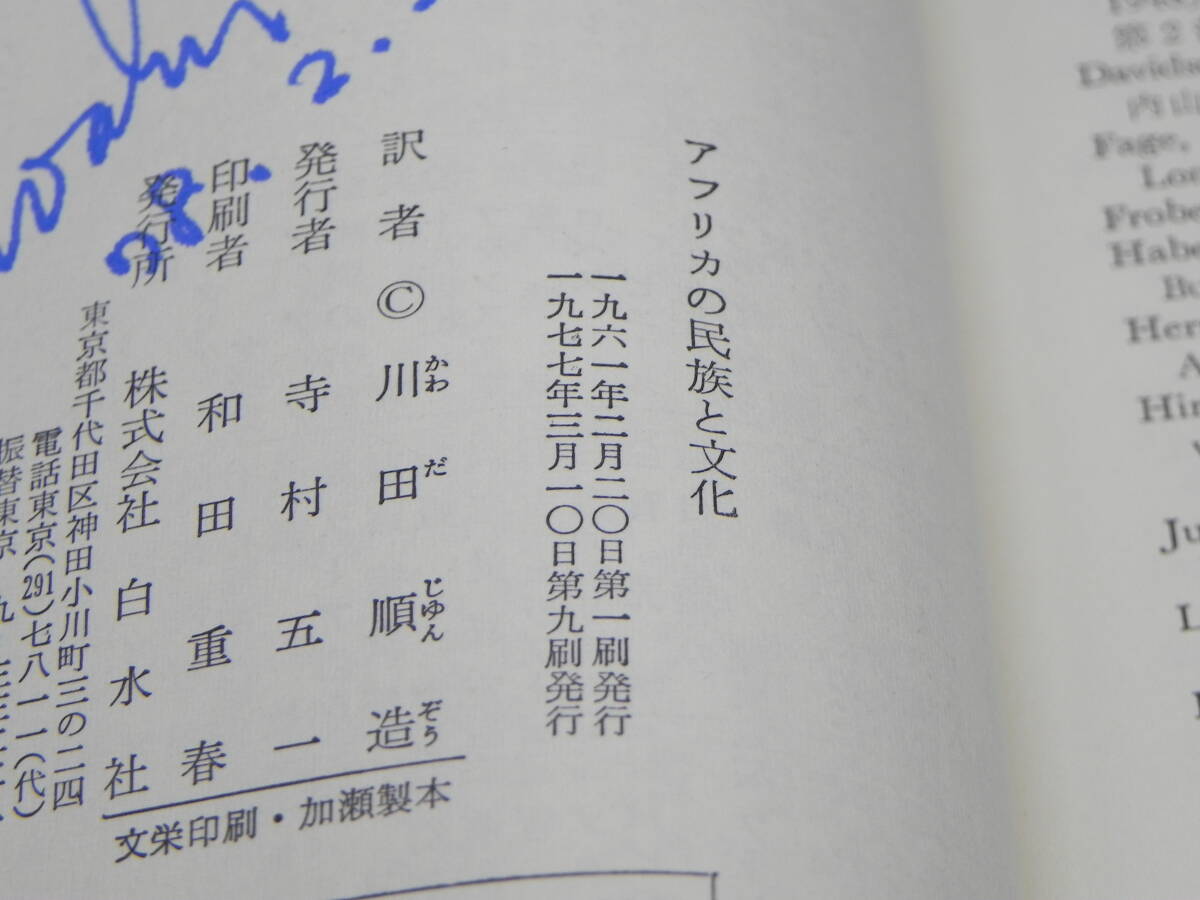 アフリカの民族と文化
一九六一年二月二〇日第一刷発行
一九七七年三月一〇日第九刷発行
訳者 © 川田順造
かわ だ じゆん ぞう
発行者 寺村五一
印刷者 和田重春
発行所 株式会社白水社
東京都千代田区神田小川町三の二四
電話東京(291)七八一一(代)
振替東京
文栄印刷・加瀬製本
28. 2.
第2
Davids
内山
Fage,
Lon
Frobe
Habe
Bo
Her
A
Hir
Ju
L